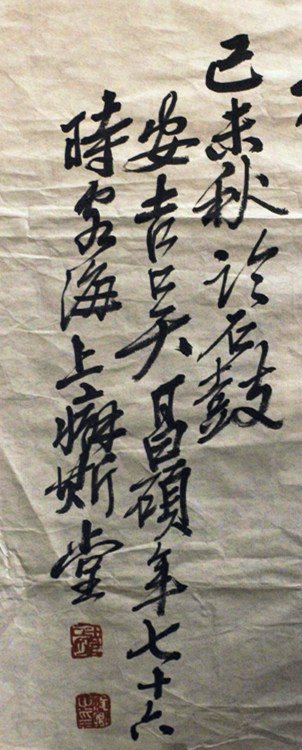 己未秋論石鼓
安吉吳昌碩年七十六
時客海上癖斯堂